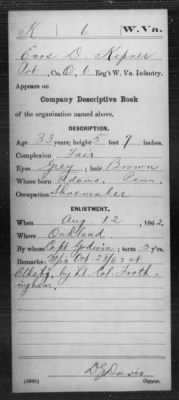 K 6 W. Va.
Enos D. Kepner
Pvt, Co. O, 6 Reg't W. Va. Infantry.
Appears on
Company Descriptive Book
of the organization named above.
DESCRIPTION.
Age 33 years; height 5 feet 7 inches.
Complexion Fair
Eyes Grey; hair Brown
Where born Adams, Penn.
Occupation Shoemaker
ENLISTMENT.
When Aug 12, 1862.
Where Oakland
By whom Capt Godwin; term 3 y'rs.
Remarks: M/i Oct 28/63 at
by Lt Col. Froth-
ingham,
D. J. Davis
Copyist.